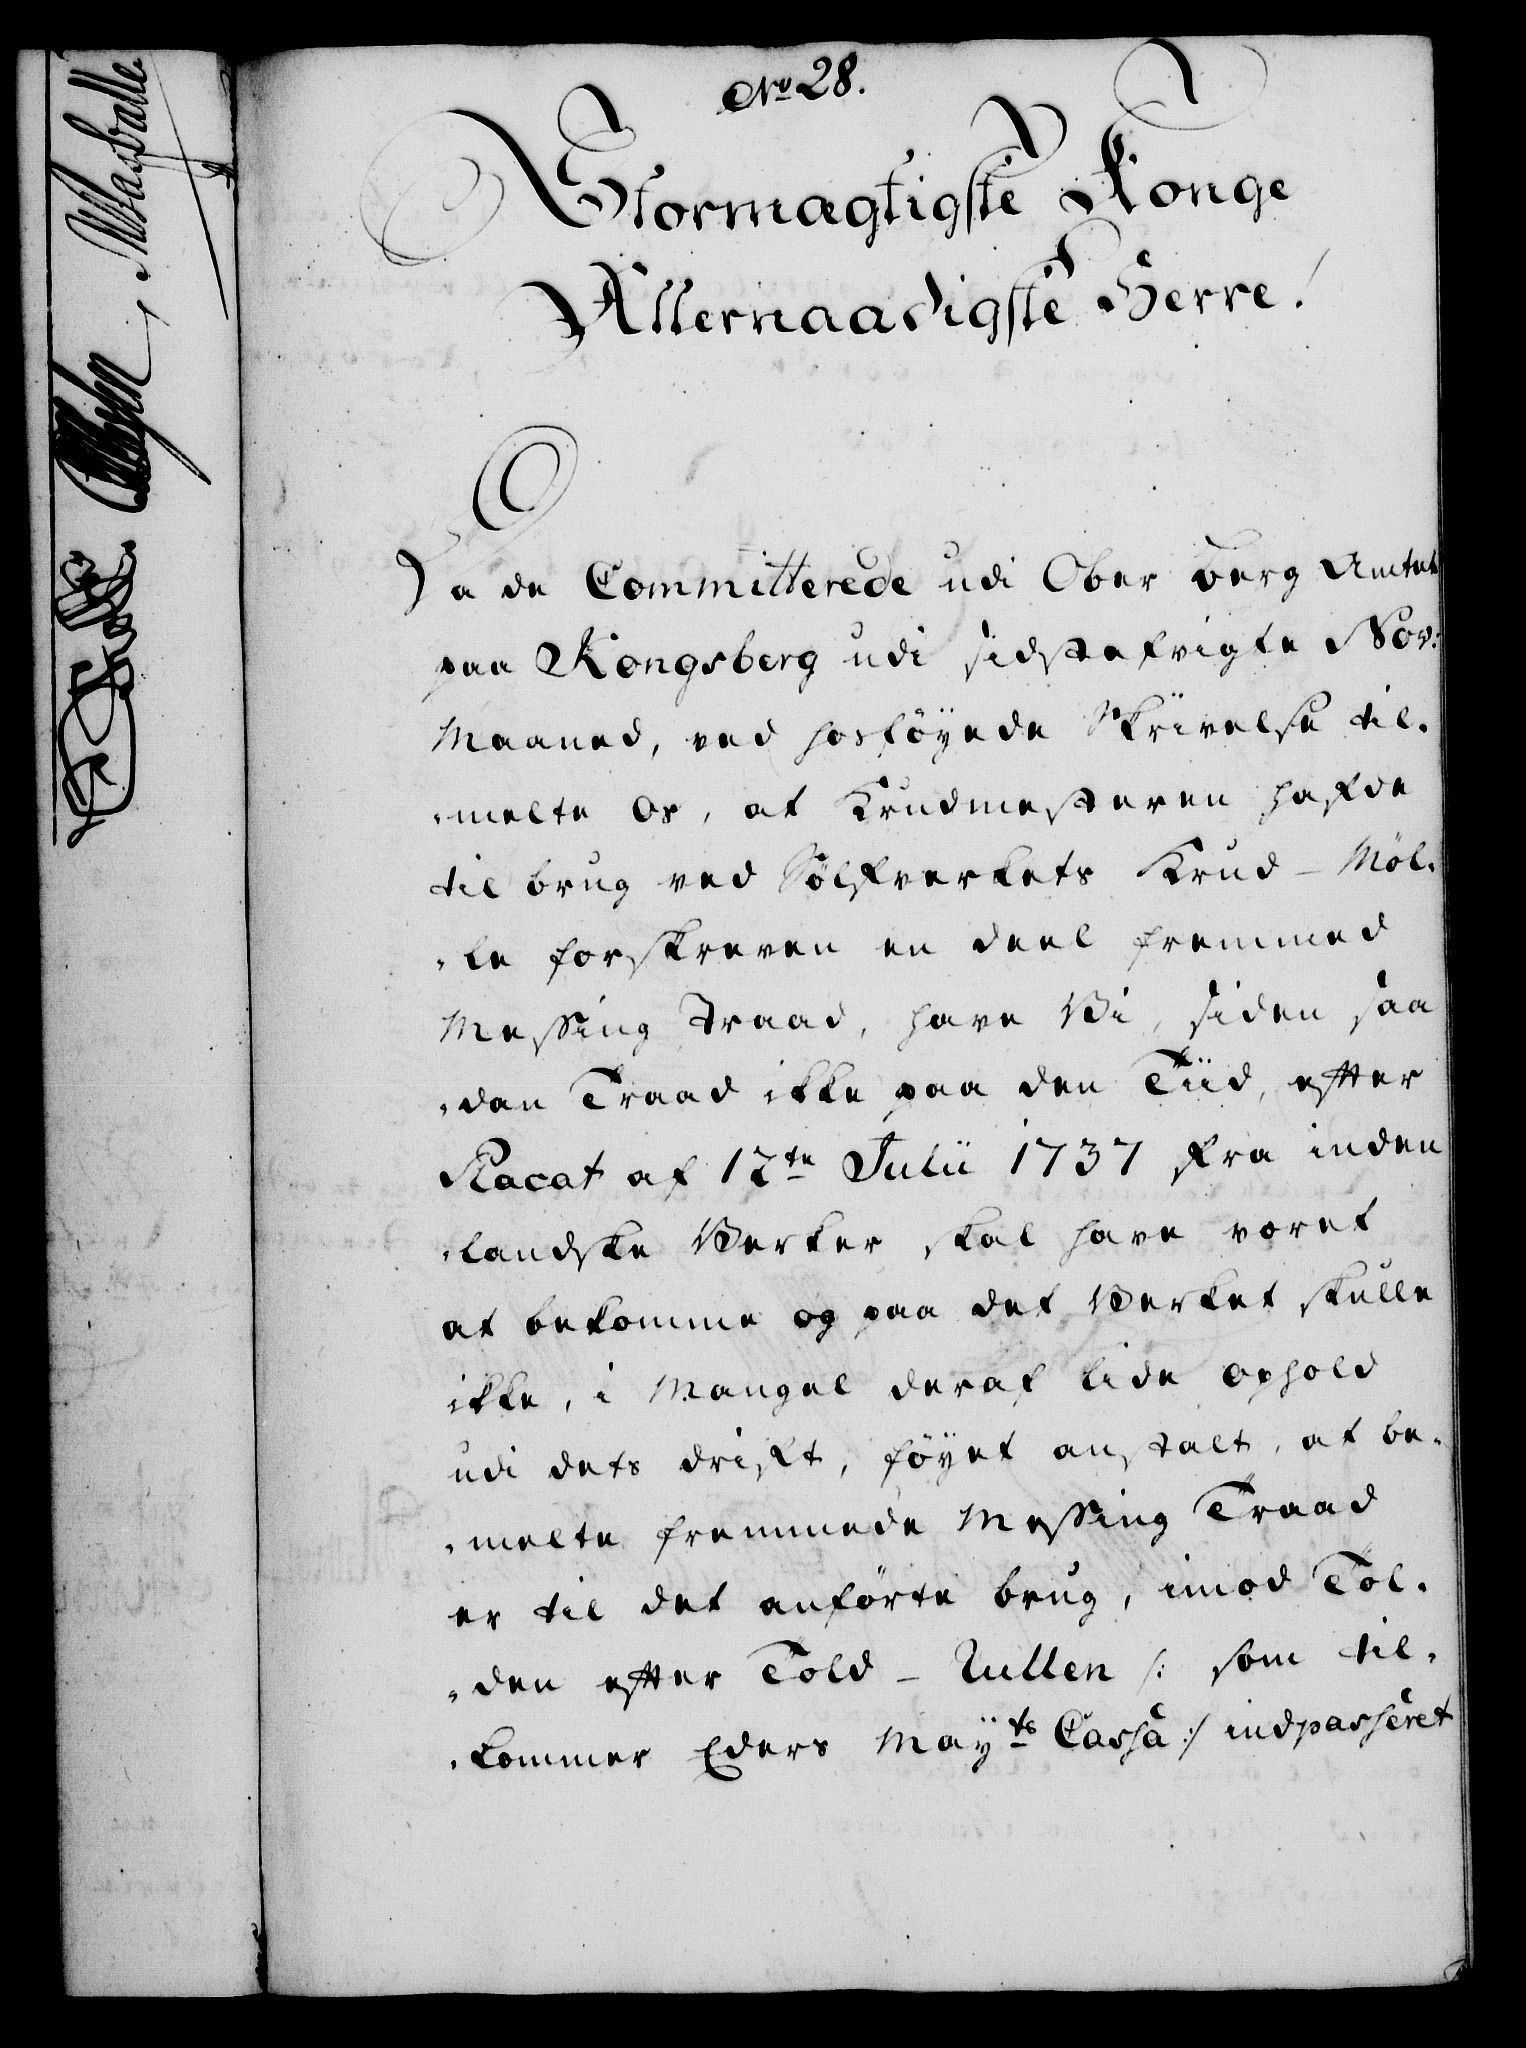 No 28.
Stormægtigste Konge
Allernaadigste Herre!
Da de Committerede udi Ober Berg Amtet
paa Kongsberg udi sidstafvigte Nov:
Maaned, ved hosföyede Skrivelse til„
„melte Os, at Krudmesteren hafde
til brug ved Sölfverkets Krud-Möl„
„le forskreven en deel fremmed
Messing Traad, have Vi, siden saa
„dan Traad ikke paa den Tiid, efter
Placat af 12te Julii 1737 fra inden
„landske Verker skal have voret
at bekomme og paa det Verket skulle
ikke, i Mangel deraf lide ophold
udi dets drift, föyet anstalt, at be„
„melte fremmede Messing Traad
er til det anförte brug, imod Tol„
„den efter Told-Rullen /: som til„
„kommer Eders Mayts Cassa :/ indpasseret